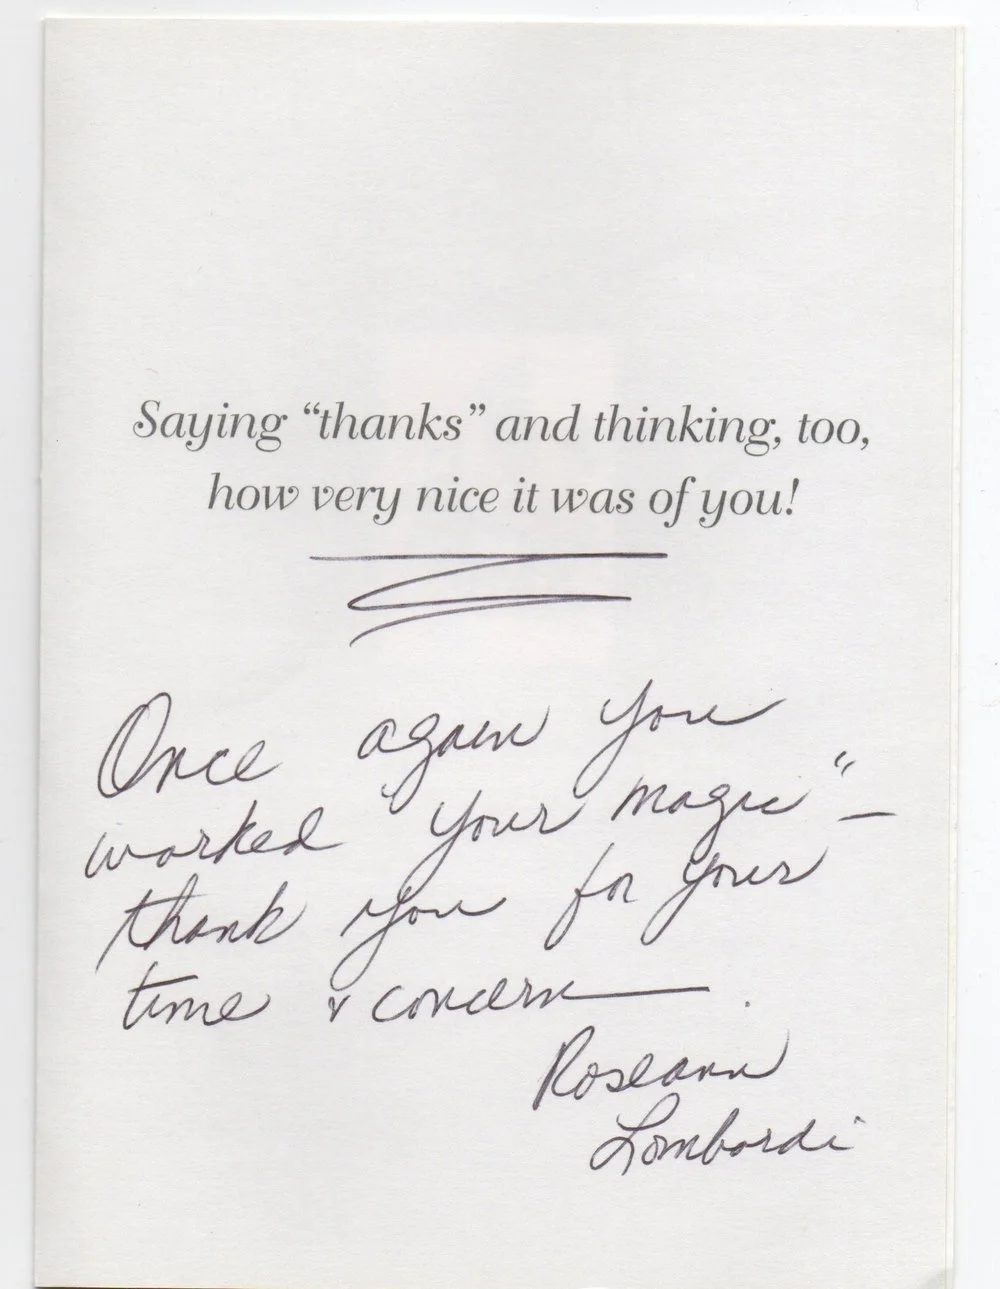 Saying “thanks” and thinking, too,
how very nice it was of you!
Once again you
worked "your magic" —
thank you for your
time & concern —
Roseann
Lombardi